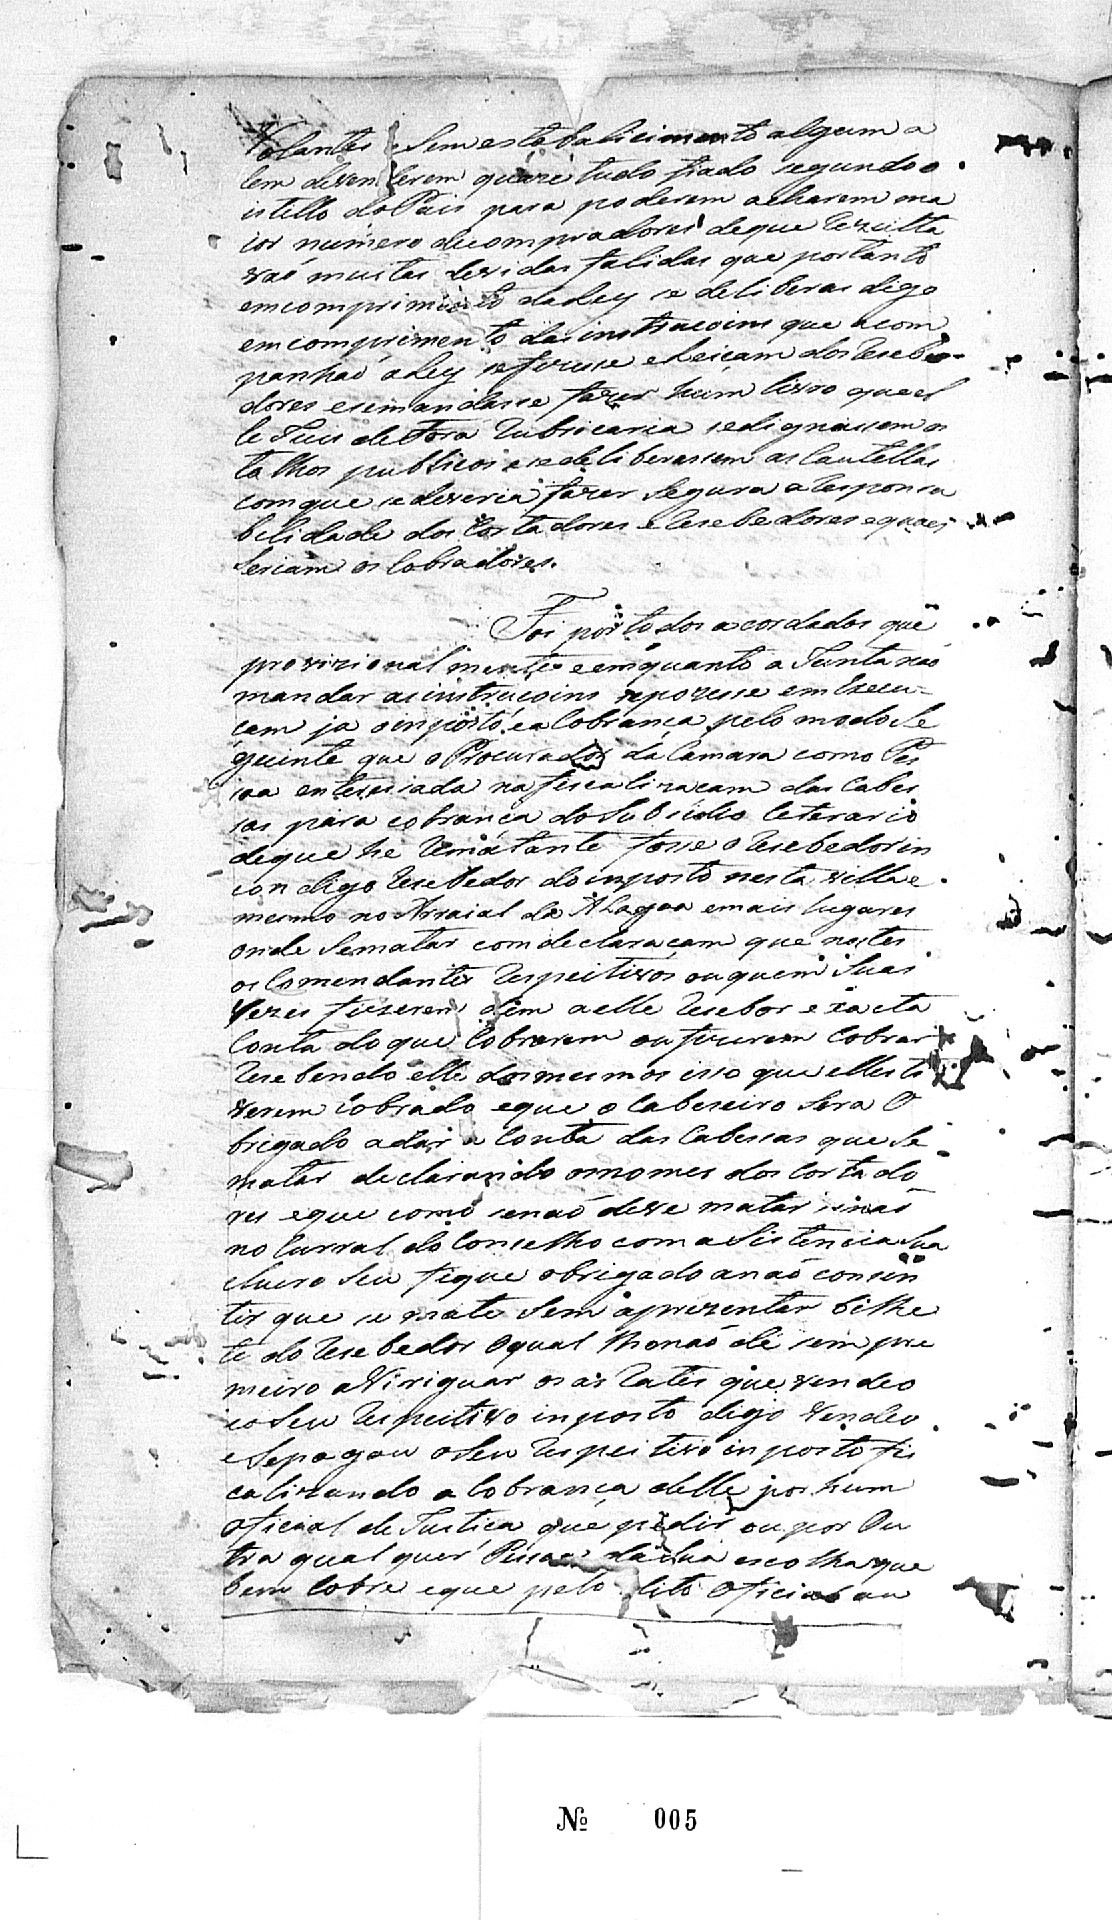 Volantes Sem estabalicimento algum a
lem devenderem quaze tudo fiado segundo o
istello do Pais para poderem acharem ma
ior numero decompradores deque Rezulta
vaõ muitas devidas falidas que portanto
emcomprimento daLey se deliberas digo
emcomprimento das instrucoins que acom
panhaõ aLey sefizesse eleiçam dos Resebe-
dores esemandasse fazer hum livro que el
le Juis de Fora Rubricaria sedignassem os
talhos publicos ese deliberassem as Cautellas
comque sedeveria fazer Segura aResponsa
belidade dos Cortadores e Resebedores equaes
Seriam os Cobradores.
Foi portodos acordados que
provizionalmente eemquanto a Junta naõ
mandar asinstrucoins sepozesse em Execu-
çam ja oinposto ea Cobrança pelo modo Se
guinte que oProcurador da Camara como Pes
soa enteresiada nafiscalizacam das Cabes
sas para cobranca do Subsidio leterario
deque he Rematante fosse o Resebedor in
con digo Resebedor do inposto nesta villa e
mesmo no Arraial da Alagoa emais lugares
onde Sematar comdeclaracam que nestes
os Comendantes Respeitivos ouquem Suas
Vezes fizerem dem aelle Resebor exacta
Conta do que Cobrarem oufizerem Cobrar
Resebendo elle dosmesmos isso que elles ti
verem Cobrado eque o Cabeseiro Sera O
brigado adar a Conta das Cabessas que Se
matar declarando osnomes dos Cortado
res eque como senaõ deve matar sinaõ
no Curral do Conselho com aSistencia Sua
eluero Seu fique obrigado anaõ consin
tir que se mate Sem aprezentar bilhe
te do Resebedor Oqual lhonaõ dê sem pre
meiro aViriguar osas Rates que vendeo
eoSeu Respeitivo inposto digo Vendeo
eSepagou oSeu Respeitivo inposto fis
calizando a Cobrança delle por hum
Oficial de Justica que pedir ou por Ou
tra qual quer Pessoa daSua escolha que
bem Cobre eque pelo dito Oficial ou
№ 005